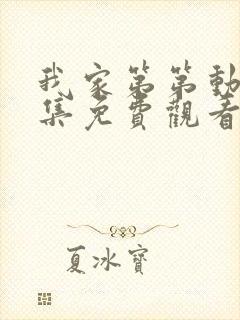 我家第第動
集免費觀看
夏冰寶